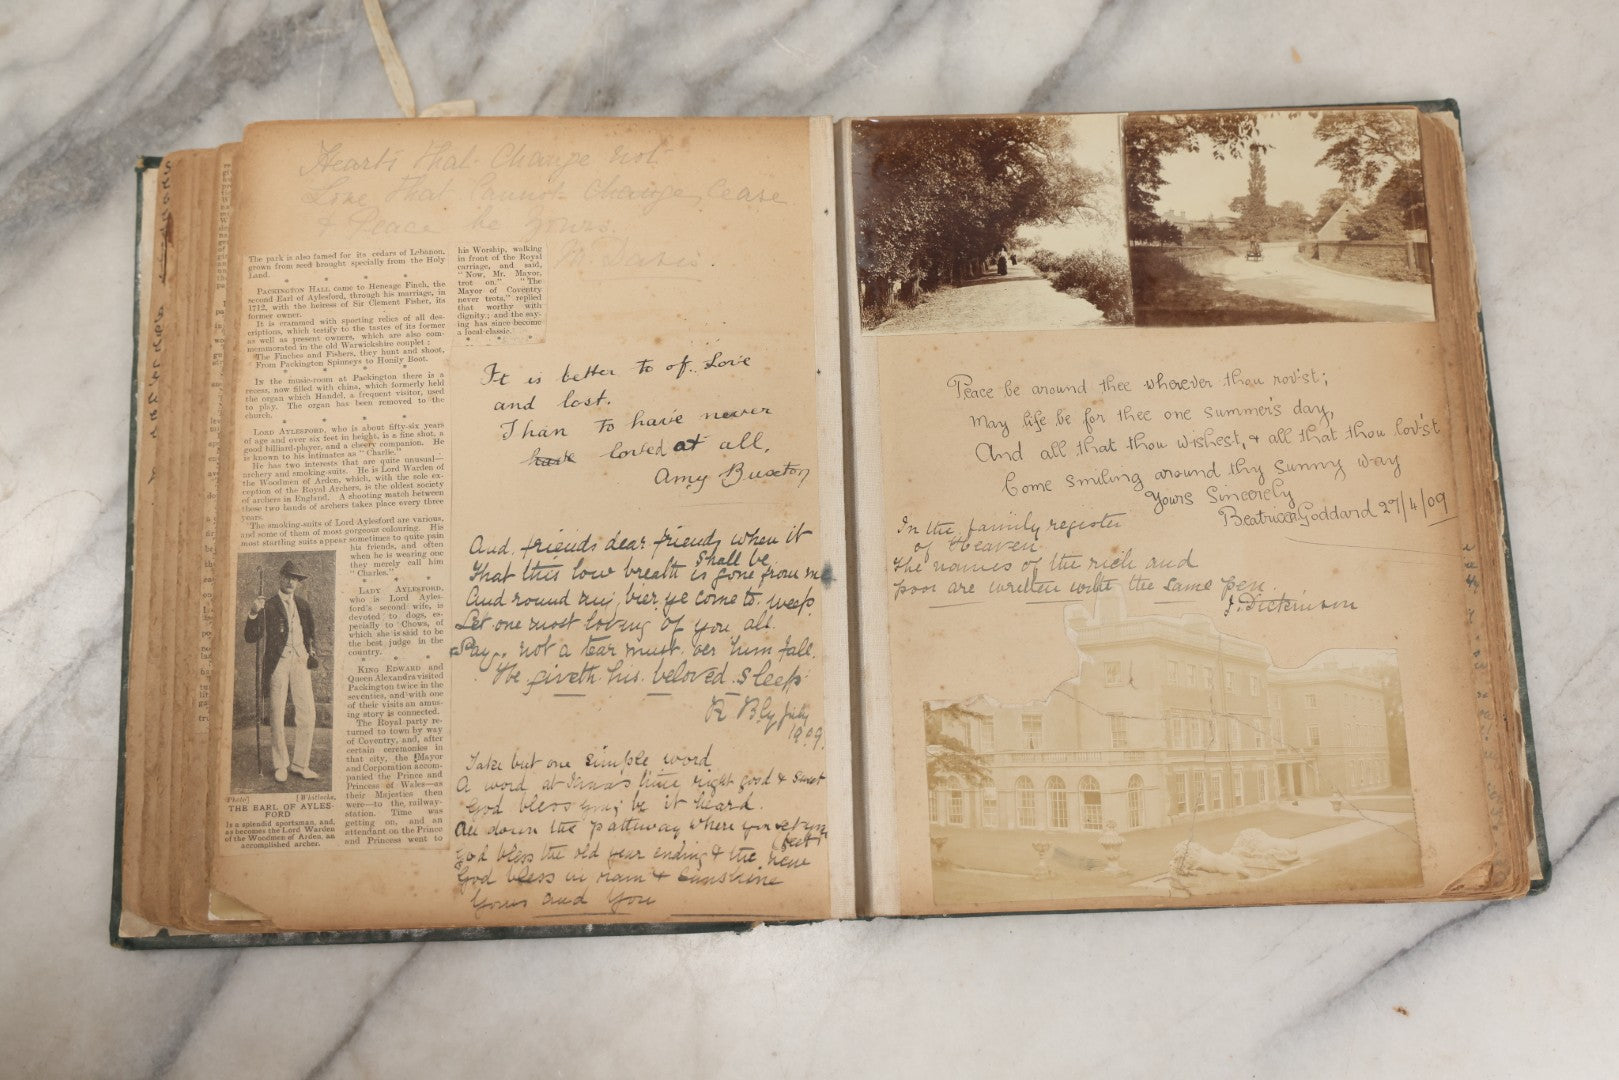 Hearts that Change not
Love that Cannot Change, Cease
& Peace be Yours.
M. Davis.
The park is also famed for its cedars of Lebanon,
grown from seed brought specially from the Holy
Land.
* * *
PACKINGTON HALL came to Heneage Finch, the
second Earl of Aylesford, through his marriage, in
1712, with the heiress of Sir Clement Fisher, its
former owner.
It is crammed with sporting relics of all des-
criptions, which testify to the tastes of its former
as well as present owners, which are also com-
memorated in the old Warwickshire couplet:
The Finches and Fishers, they hunt and shoot,
From Packington Spinneys to Honily Boot.
* * *
IN the music-room at Packington there is a
recess, now filled with china, which formerly held
the organ which Handel, a frequent visitor, used
to play. The organ has been removed to the
church.
* * *
LORD AYLESFORD, who is about fifty-six years
of age and over six feet in height, is a fine shot, a
good billiard-player, and a cheery companion. He
is known to his intimates as "Charlie."
He has two interests that are quite unusual—
archery and smoking-suits. He is Lord Warden of
the Woodmen of Arden, which, with the sole ex-
ception of the Royal Archers, is the oldest society
of archers in England. A shooting match between
these two bands of archers takes place every three
years.
The smoking-suits of Lord Aylesford are various,
and some of them of most gorgeous colouring. His
most startling suits appear sometimes to quite pain
his friends, and often
when he is wearing one
they merely call him
"Charles."
* * *
LADY AYLESFORD,
who is Lord Ayles-
ford's second wife, is
devoted to dogs, es-
pecially to Chows, of
which she is said to be
the best judge in the
country.
* * *
KING EDWARD and
Queen Alexandra visited
Packington twice in the
seventies, and with one
of their visits an amus-
ing story is connected.
The Royal party re-
turned to town by way
of Coventry, and, after
certain ceremonies in
that city, the Mayor
and Corporation accom-
panied the Prince and
Princess of Wales—as
their Majesties then
were—to the railway-
station. Time was
getting on, and an
attendant on the Prince
and Princess went to
Photo] [Whitlocks.
THE EARL OF AYLES-
FORD
Is a splendid sportsman, and,
as becomes the Lord Warden
of the Woodmen of Arden, an
accomplished archer.
his Worship, walking
in front of the Royal
carriage, and said,
"Now, Mr. Mayor,
trot on." "The
Mayor of Coventry
never trots," replied
that worthy with
dignity; and the say-
ing has since become
a local classic.
* * *
It is better to of. Love
and lost.
Than to have never
have loved at all.
Amy Buxton
And, friends dear friends when it
shall be
That this low breath is gone from me
And round my bier ye come to weep
Let one most loving of you all
Say, not a tear must oer him fall
He giveth his beloved sleep
R Bly July
1909.
Take but one simple word
A word at Xmas time right good & sweet
God bless you, be it heard.
All down the pathway where you set your
feet
God bless the old year ending & the new
God bless in rain & sunshine
Yours and You
Peace be around thee wherever thou rov'st;
May life be for thee one summer's day,
And all that thou wishest, & all that thou lov'st
Come smiling around thy sunny way
Yours Sincerely
Beatrice Goddard 27/4/09
In the family register
of Heaven
The names of the rich and
poor are written with the same pen.
J. Dickinson